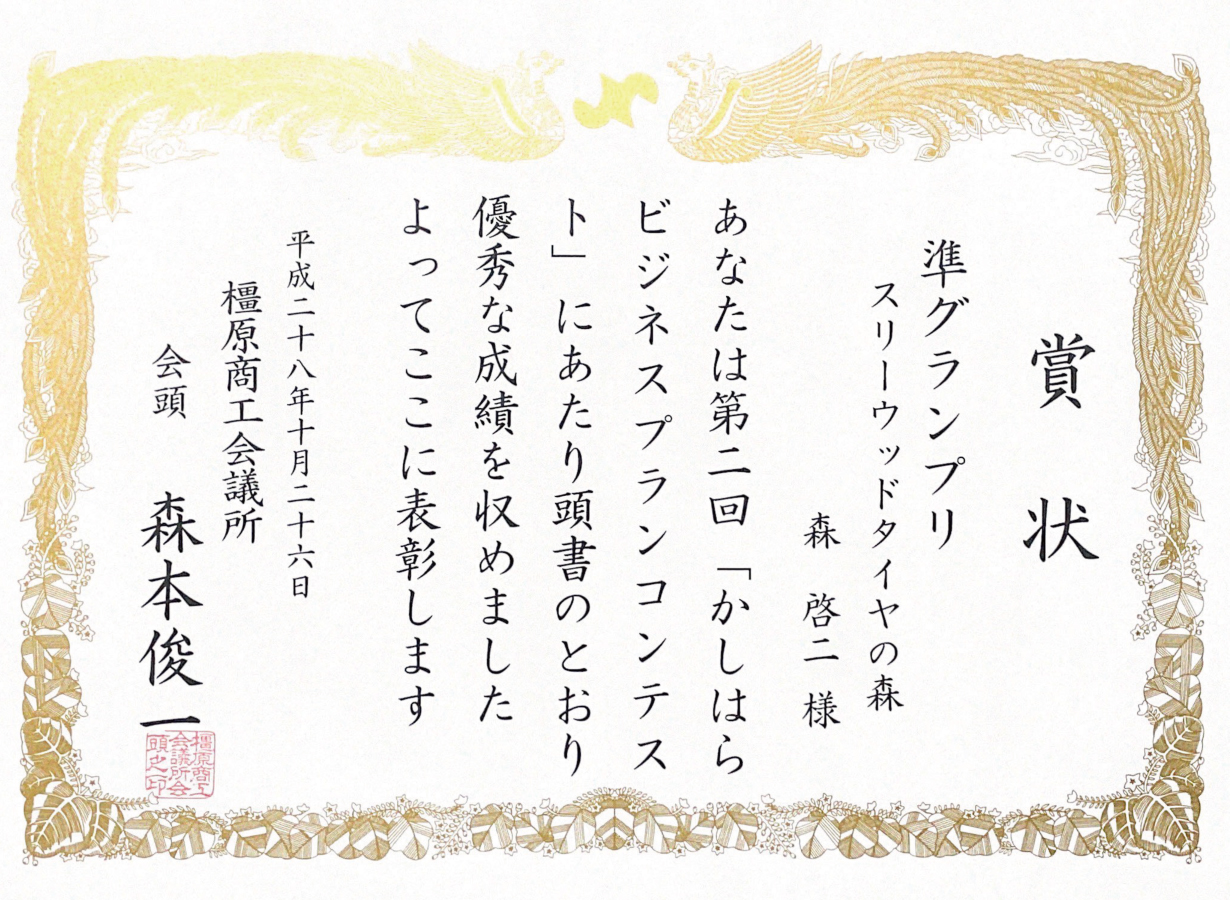 賞状
準グランプリ
スリーウッドタイヤの森
森 啓二 様
あなたは第二回「かしはら
ビジネスプランコンテス
ト」にあたり頭書のとおり
優秀な成績を収めました
よってここに表彰します
平成二十八年十月二十六日
橿原商工会議所
会頭 森本俊一
橿原商工
会議所会
頭之印